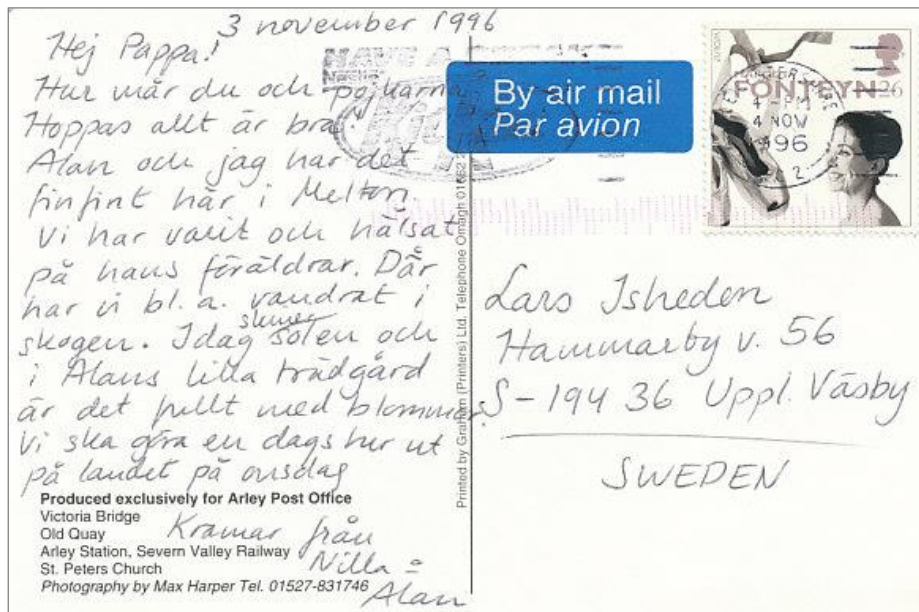 3 november 1996
Hej Pappa!
Hur mår du och pojkarna
Hoppas allt är bra.
Alan och jag har det
finfint här i Melton
Vi har varit och hälsat
på hans föräldrar. Där
har vi bl. a. vandrat i
skogen. Idag skiner solen och
i Alans lilla trädgård
är det fullt med blommor.
Vi ska göra en dagstur ut
på landet på onsdag
Kramar från
Nilla o
Alan
Produced exclusively for Arley Post Office
Victoria Bridge
Old Quay
Arley Station, Severn Valley Railway
St. Peters Church
Photography by Max Harper Tel. 01527-831746
Printed by Graham (Printers) Ltd. Telephone Omagh
HAVE A
By air mail
Par avion
FONTEYN 26
4 - PM
4 NOV
1996
2
Lars Isheden
Hammarby v. 56
S-194 36 Uppl. Väsby
SWEDEN